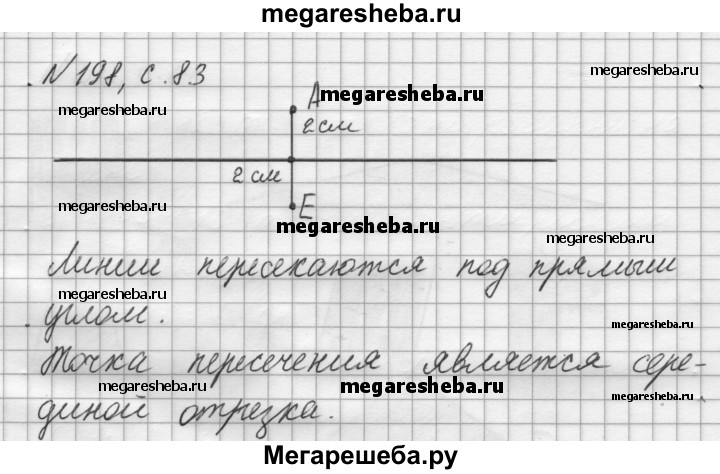 megaresheba.ru
№198, с. 83
megaresheba.ru
A
megaresheba.ru
megaresheba.ru
2 см
2 см
megaresheba.ru
E
megaresheba.ru
megaresheba.ru
Линии пересекаются под прямым
megaresheba.ru
углом.
megaresheba.ru
Точка пересечения является сере-
megaresheba.ru
megaresheba.ru
megaresheba.ru
диной отрезка.
Мегарешеба.ру